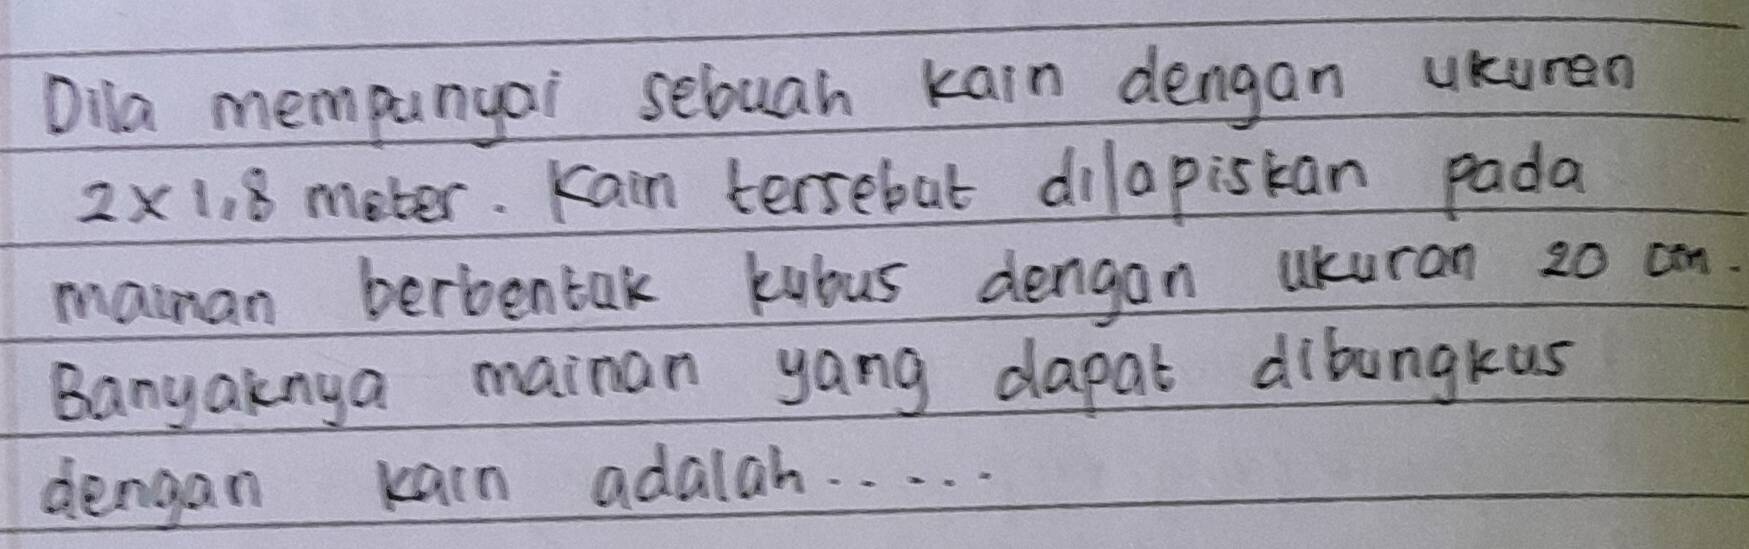 Dila mempunyai sebuah kain dengan ukuran
2 x 1,8 meter. Kain tersebut dilapiskan pada
mainan berbentuk kubus dengan ukuran 20 cm.
Banyaknya mainan yang dapat dibungkus
dengan kain adalah......